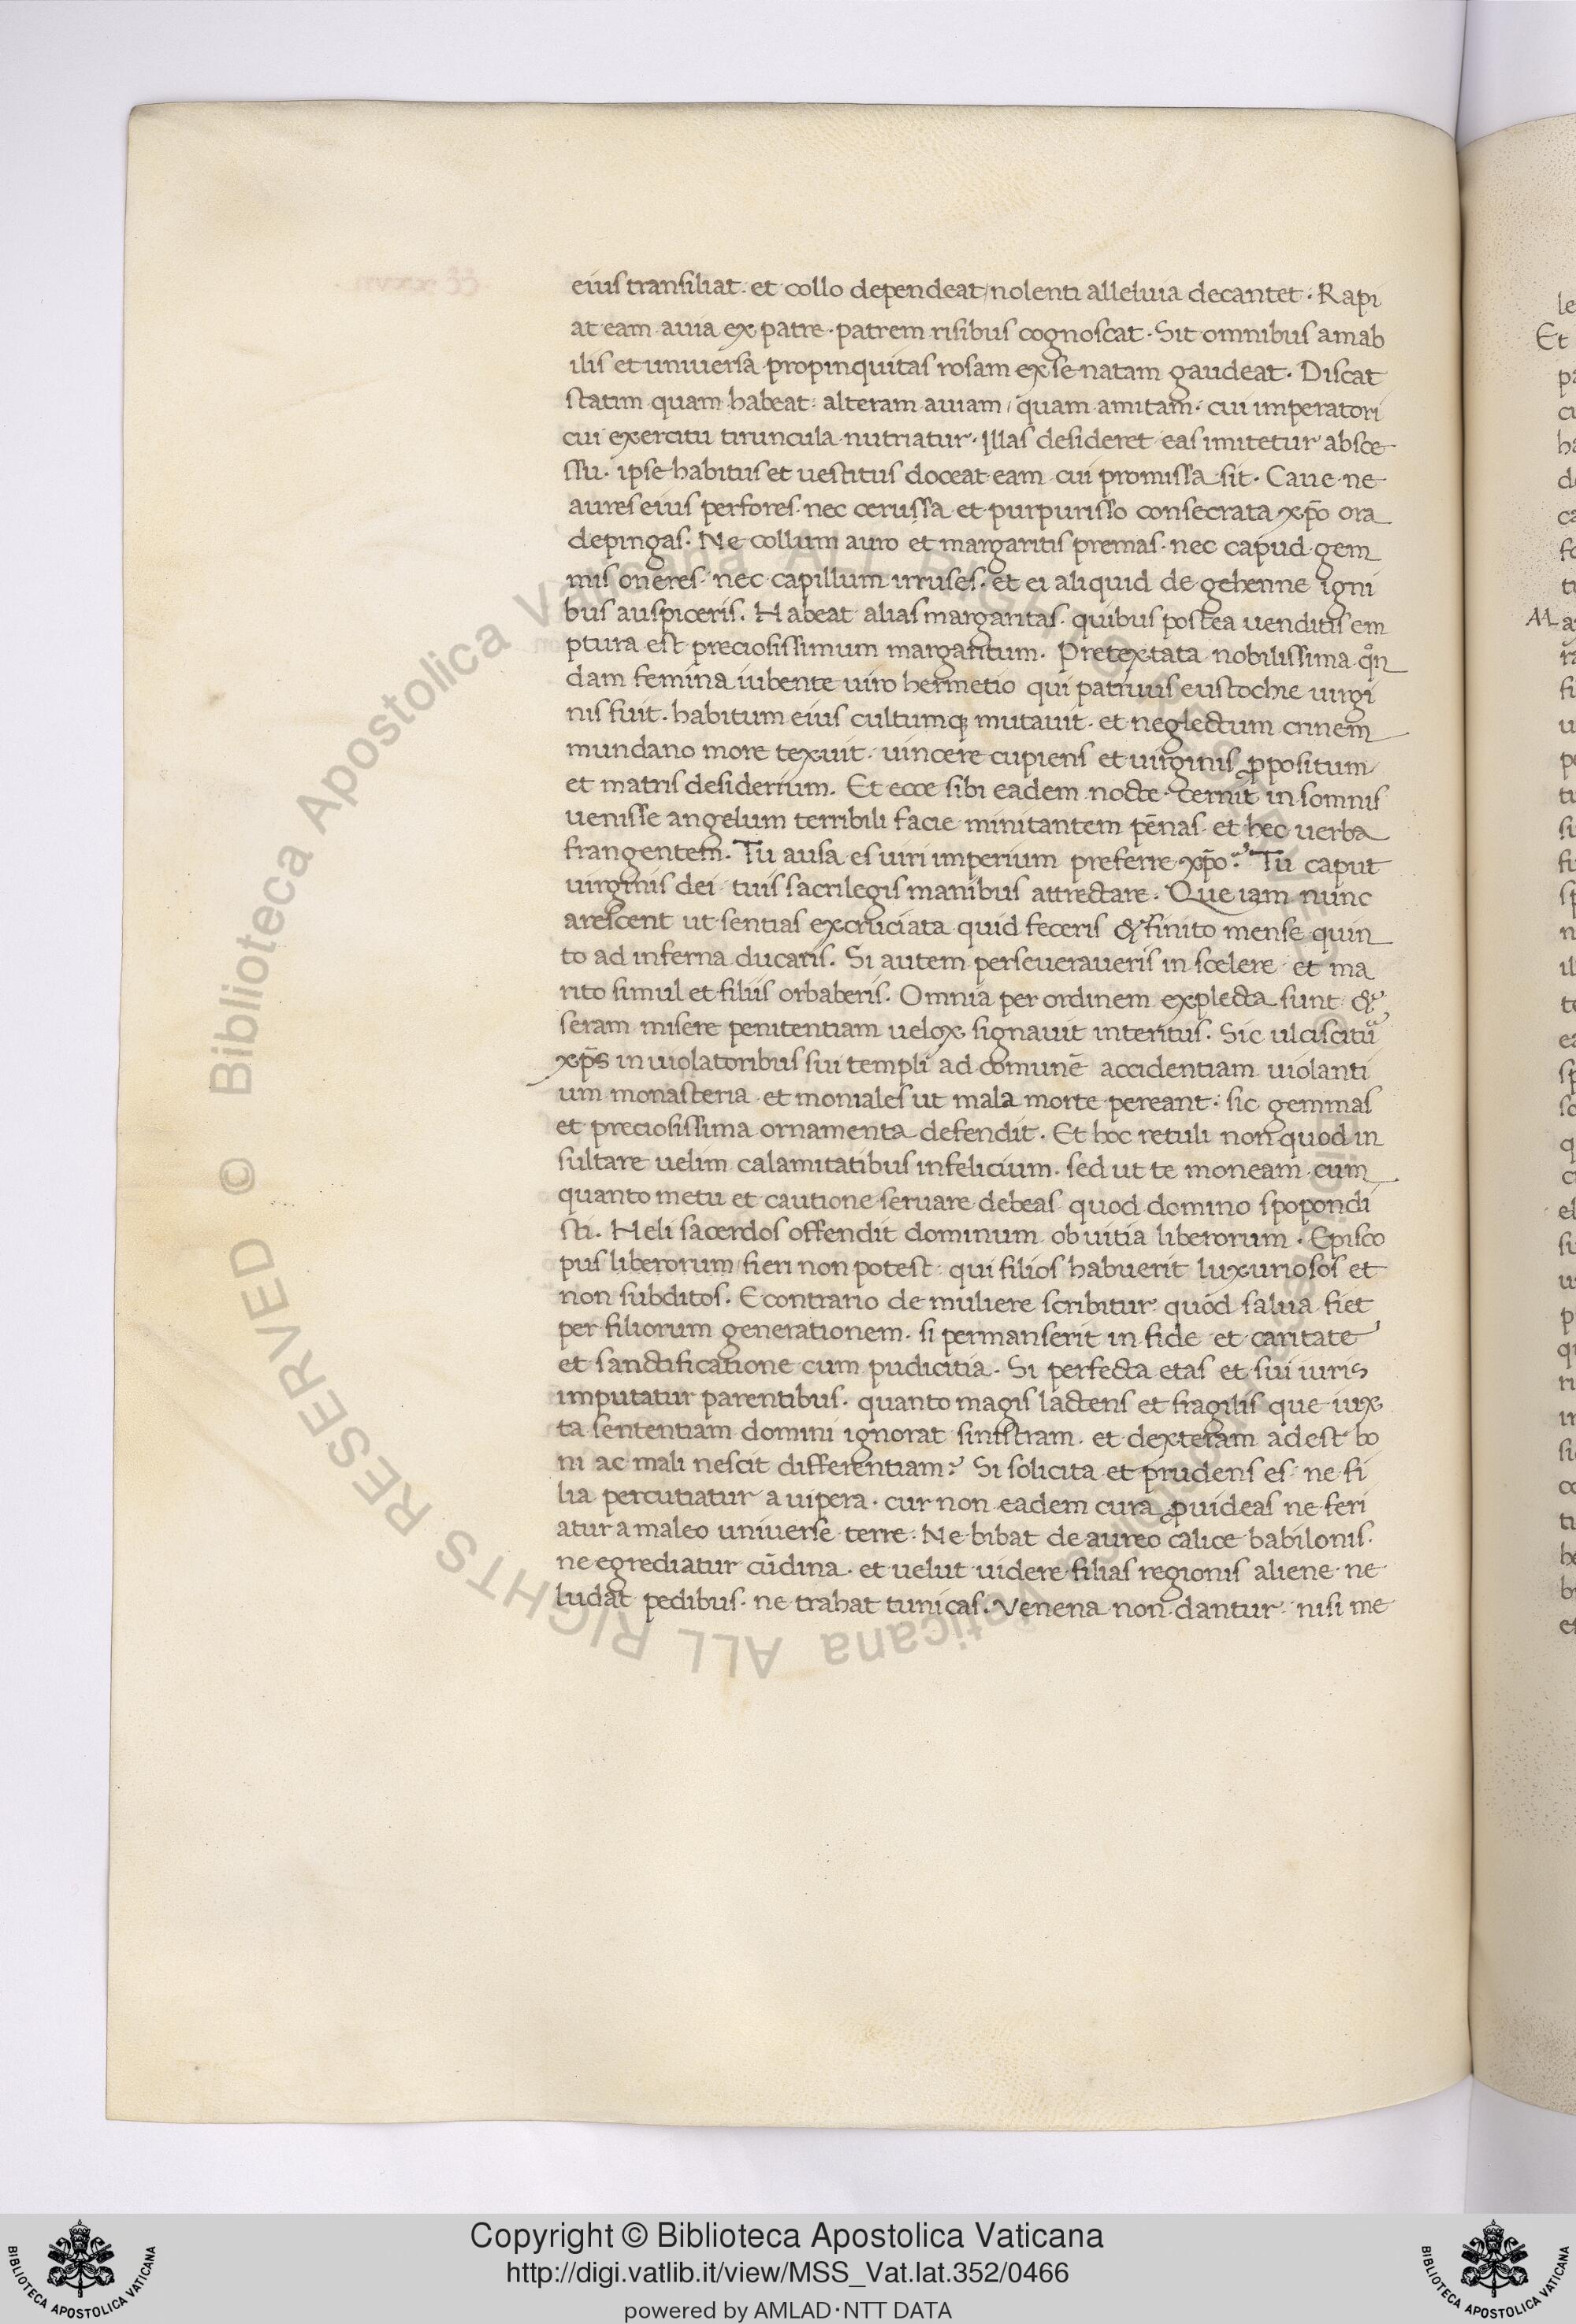 eius transiliat. et collo dependeat/nolenti alleluia decantet. Rapi
at eam auia ex patre. patrem risibus cognoscat. Sit omnibus amab
ilis et uniuersa propinquitas rosam ex se natam gaudeat. Discat
statim quam habeat: alteram auiam/quam amitam. cui imperatori
cui exercitu tiruncula nutriatur. Illas desideret eas imitetur absce
ssu. ipse habitus et uestitus doceat eam cui promissa sit. Caue ne
aures eius perfores. nec cerussa et purpurisso consecrata xp̄o ora
depingas. Ne collum auro et margaritis premas. nec capud gem
mis oneres. nec capillum irruses. et ei aliquid de gehenne igni
bus auspiceris. Habeat alias margaritas. quibus postea uenditis em
ptura est preciosissimum margaritum. Pretextata nobilissima qͦn
dam femina iubente uiro hermetio qui patruus eustochie uirgi
nis fuit. habitum eius cultumq; mutauit. et neglectum crinem
mundano more texuit. uincere cupiens et uirginis ꝓpositum
et matris desiderium. Et ecce sibi eadem nocte cernit in somnis
uenisse angelum terribili facie minitantem pēnas. et hec uerba
frangentem. Tu ausa es uiri imperium preferre xp̄o? Tu caput
uirginis dei tuis sacrilegis manibus attrectare. Que iam nunc
arescent ut sentias excruciata quid feceris & finito mense quin
to ad inferna ducaris. Si autem perseueraueris in scelere et ma
rito simul et filiis orbaberis. Omnia per ordinem explecta sunt &
seram misere penitentiam uelox signauit interitus. Sic ulciscitu᷑
xp̄s in uiolatoribus sui templi ad comunē accidentiam uiolanti
um monasteria et moniales ut mala morte pereant. sic gemmas
et preciosissima ornamenta defendit. Et hoc retuli non quod in
sultare uelim calamitatibus infelicium. sed ut te moneam cum
quanto metu et cautione seruare debeas quod domino spopondi
sti. Heli sacerdos offendit dominum ob uitia liberorum. Episco
pus liberorum/fieri non potest qui filios habuerit luxuriosos et
non subditos. E contrario de muliere scribitur quod salua fiet
per filiorum generationem. si permanserit in fide et caritate
et sanctificatione cum pudicitia. Si perfecta etas et sui iuris
imputatur parentibus. quanto magis lactens et fragilis que iux
ta sententiam domini ignorat sinistram. et dexteram adest bo
ni ac mali nescit differentiam? Si solicita et prudens es ne fi
lia percutiatur a uipera. cur non eadem cura ꝓuideas ne feri
atur a maleo uniuerse terre. Ne bibat de aureo calice babilonis.
ne egrediatur cū dina. et uelut uidere filias regionis aliene ne
ludat pedibus. ne trahat tunicas. Venena non dantur nisi me
Et
Copyright © Biblioteca Apostolica Vaticana
http://digi.vatlib.it/view/MSS_Vat.lat.352/0466
powered by AMLAD·NTT DATA
BIBLIOTECA APOSTOLICA VATICANA
BIBLIOTECA APOSTOLICA VATICANA
© Biblioteca Apostolica Vaticana ALL RIGHTS RESERVED